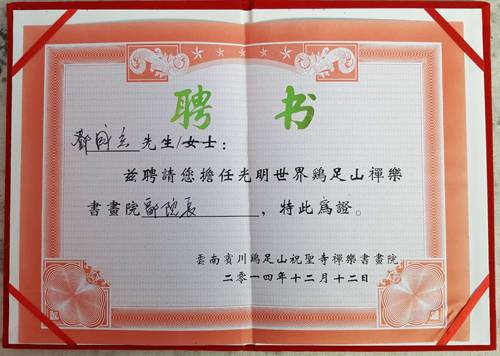 聘 书
鄧國玄 先生/女士：
兹聘請您擔任光明世界鷄足山禪樂
書畫院副院長，特此為證。
雲南賓川鷄足山祝聖寺禪樂書畫院
二零一四年十二月十二日